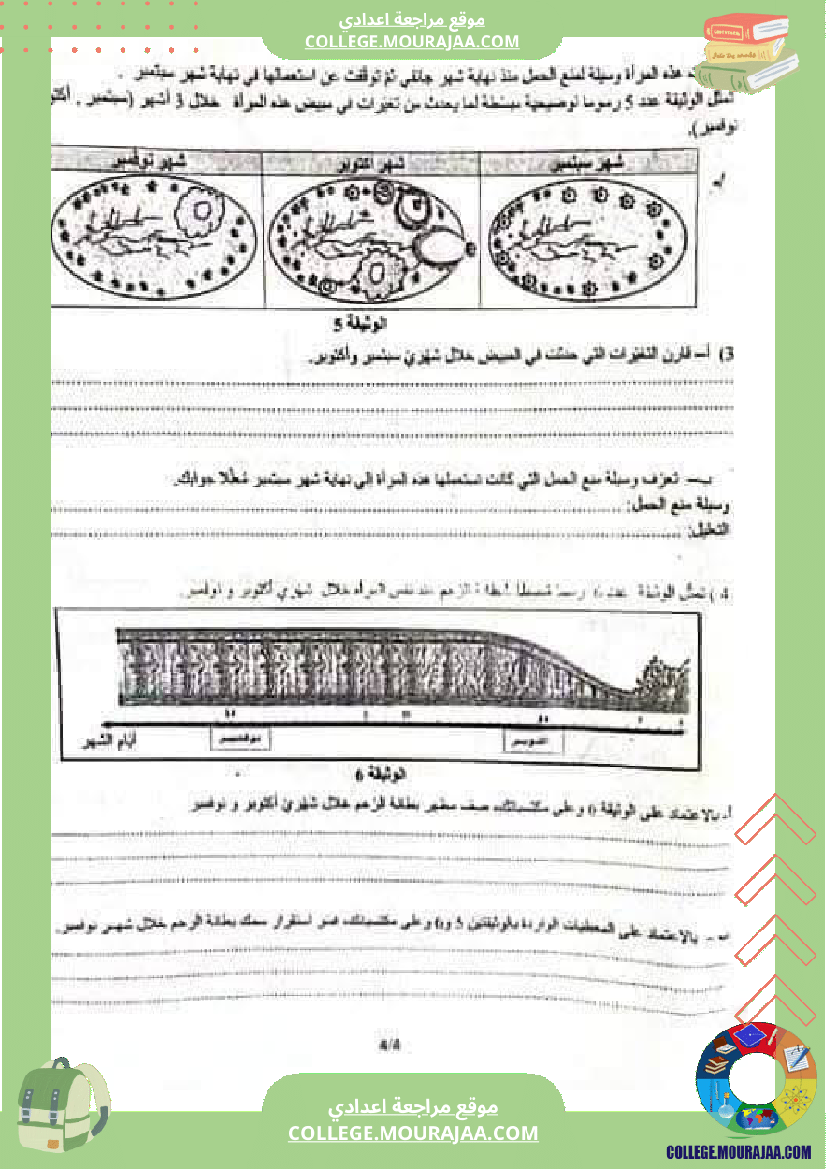 موقع مراجعة اعدادي
COLLEGE.MOURAJAA.COM
هذه المرأة وسيلة لمنع الحمل منذ نهاية شهر جانفي ثم توقفت عن استعمالها في نهاية شهر سبتمبر .
تمثل الوثيقة عدد 5 رسوما توضيحية مبسطة لما يحدث من تغيرات في مبيض هذه المرأة خلال 3 أشهر (سبتمبر ,
نوفمبر).
شهر سبتمبر شهر أكتوبر شهر نوفمبر
الوثيقة 5
3) أ– قارن التغيرات التي حدثت في المبيض خلال شهري سبتمبر وأكتوبر.
ب– تعرف وسيلة منع الحمل التي كانت تستعملها هذه المرأة إلى نهاية شهر سبتمبر مُعلّلا جوابك.
وسيلة منع الحمل:
التعليل:
4 ) تمثل الوثيقة عدد 6 رسما لبطانة الرحم عند نفس المرأة خلال شهري أكتوبر و نوفمبر.
أكتوبر نوفمبر أيام الشهر
الوثيقة 6
أ- بالاعتماد على الوثيقة 6 وعلى مكتسباتك، صف مظهر بطانة الرحم خلال شهري أكتوبر و نوفمبر
بالاعتماد على المعطيات الواردة بالوثيقتين 5 و6 وعلى مكتسباتك، فسر استقرار سمك بطانة الرحم خلال شهر نوفمبر.
4/4
موقع مراجعة اعدادي
COLLEGE.MOURAJAA.COM
COLLEGE.MOURAJAA.COM